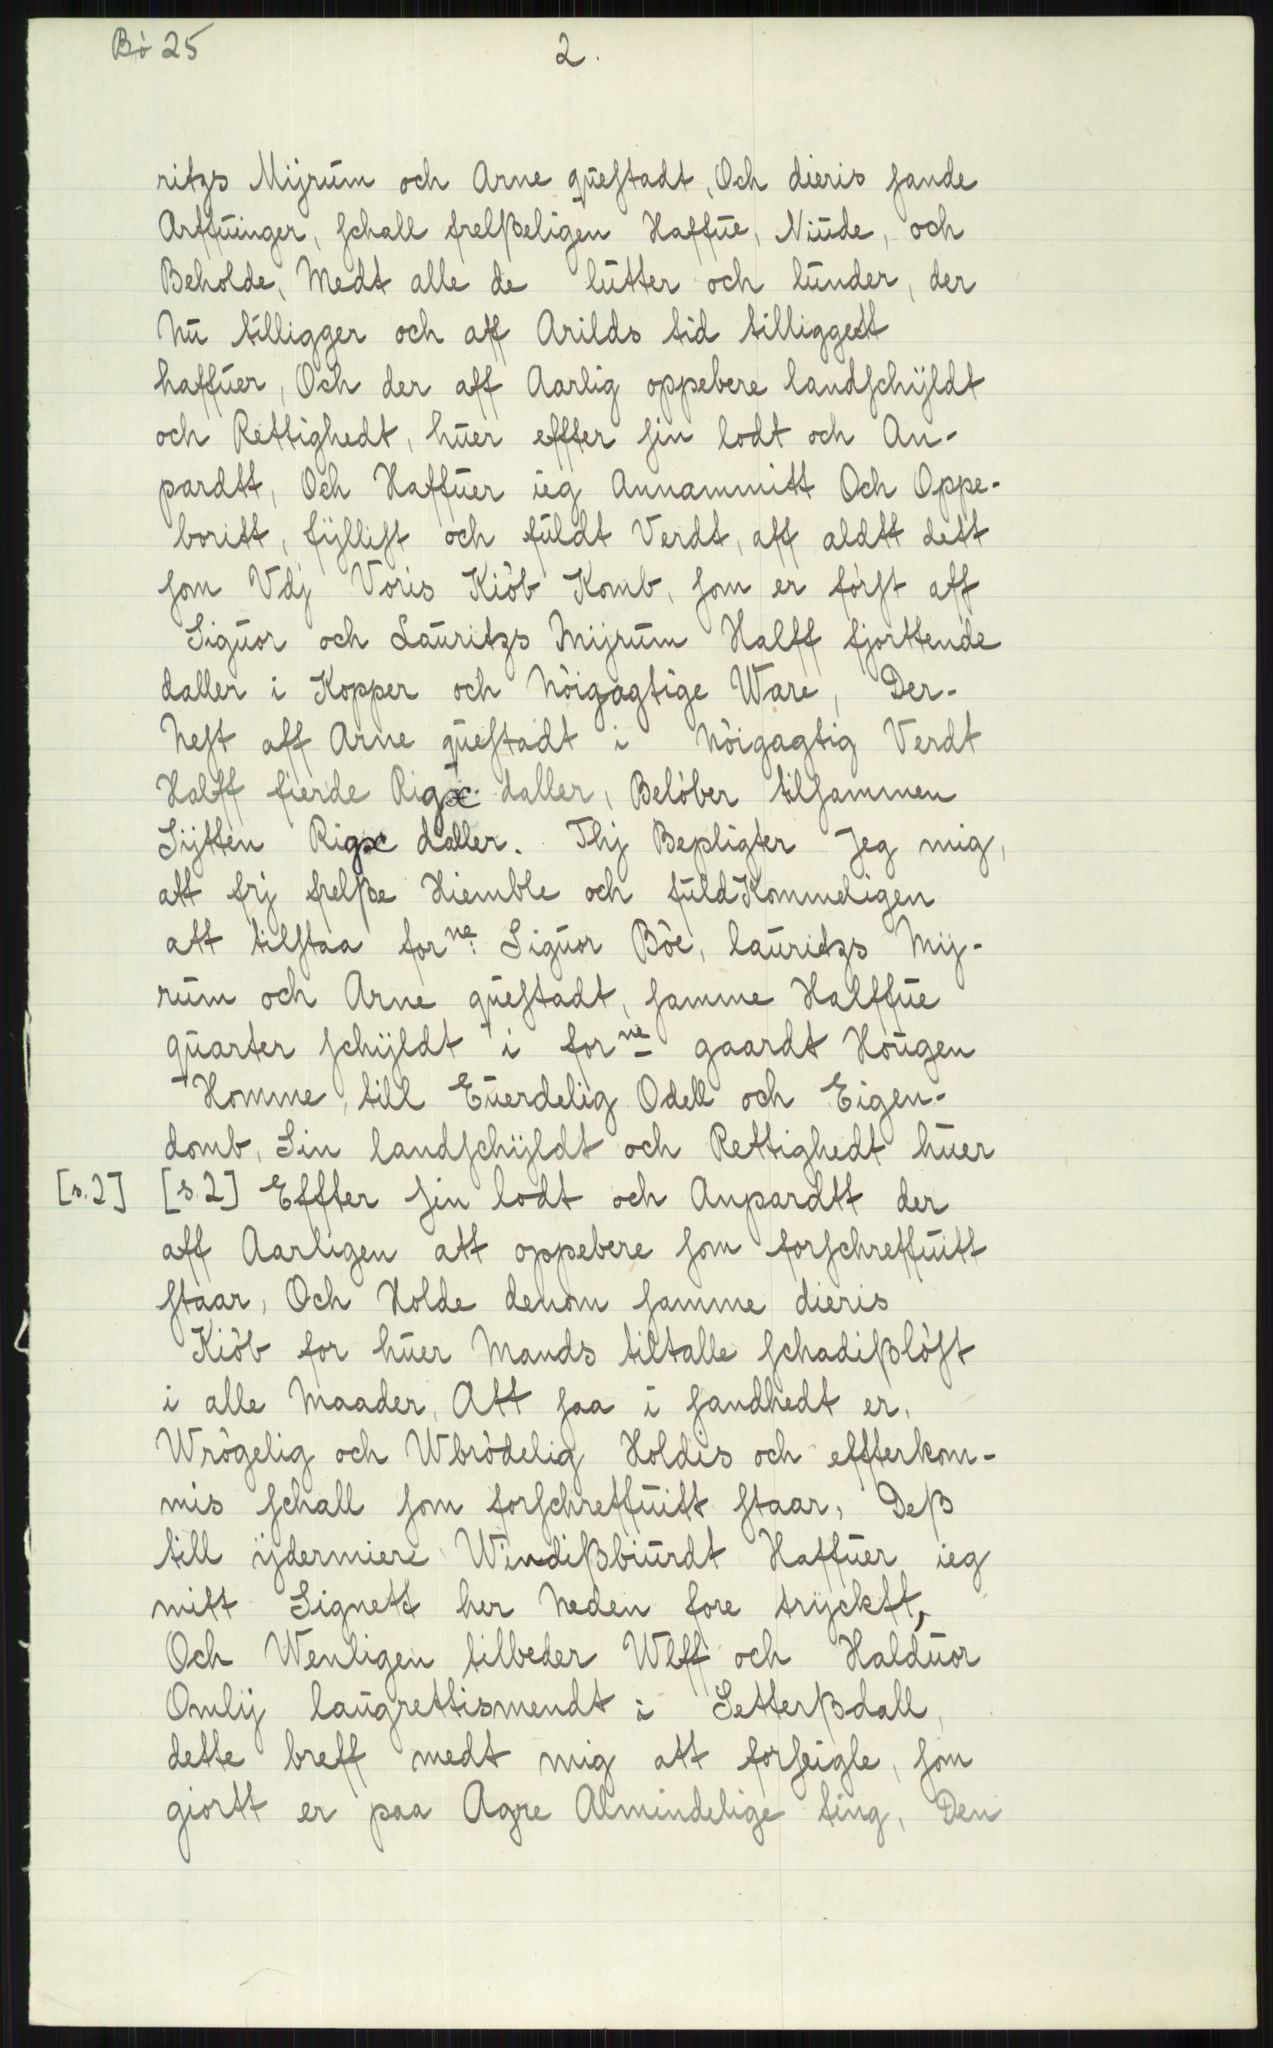 Bö 25
2.
ritzs Mijrum och Arne questadt, Och dieris sande
Arffuinger, schall frelßeligen Haffue, Niude, och
Beholde, Medt alle de lutter och lunder, der
Nu tilligger och aff Arilds tid tilliggett
haffuer, Och der aff Aarlig oppebere landschÿldt
och Rettighedt, huer effter sin lodt och An-
pardtt, Och Haffuer ieg Annammitt Och Oppe-
boritt, fÿllist och fuldt Verdt, aff aldtt dett
som Vdj Voris Kiöb Komb, som er först aff
Siguor och Lauritzs Mijrum Halff fjorttende
daller i Kopper och Nöigagtige Ware, Der-
Nest aff Arne questadt i Nöigagtig Verdt
Halff fierde Rigx daller, Belöber tilsammen
Sÿtten Rigx daller. Thj Bepligter Jeg mig,
att frj frelße Hiemble och fuldKommeligen
att tilstaa forne: Siguor Böe, lauritzs Mij-
rum och Arne questadt, samme Halffue
quarter schÿldt i forne gaardt Hougen
Homme, till Euerdelig Odell och Eigen-
domb, Sin landschÿldt och Rettighedt huer
[s.2] [s.2] Effter sin lodt och Anpardtt der
aff Aarligen att oppebere som forschreffuitt
staar, Och Holde denom samme dieris
Kiöb for huer Mands tiltalle schadißlöst
i alle Maader, Att saa i sandhedt er,
Wrögelig och Wbrödelig Holdis och effterkom-
mis schall som forschreffuitt staar, Deß
till ÿdermiere Windißbiurdt Haffuer ieg
mitt Signett her Neden fore trÿcktt,
Och Wenligen tilbeder Wlff och Halduor
Omlij laugrettismendt i Setterßdall,
dette breff medt mig att forseigle, som
giortt er paa Agre Almindelige ting, Den